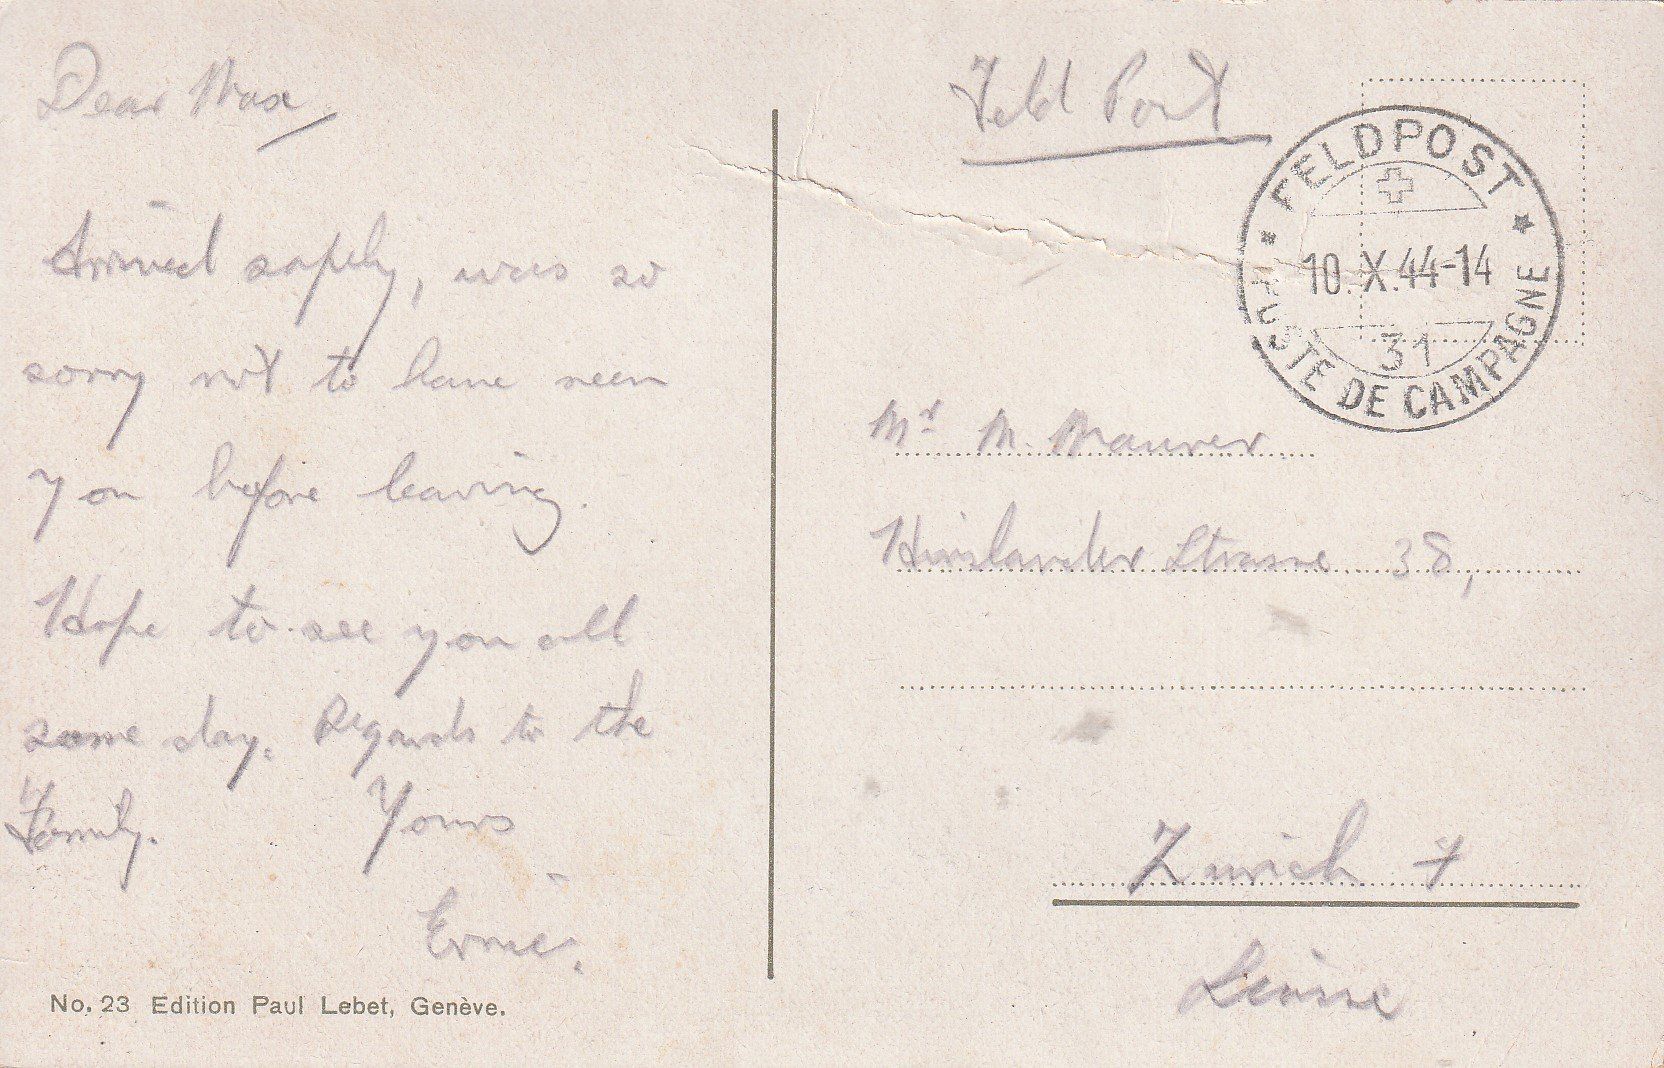 Dear Max
Arrived safely, was so
sorry not to have seen
you before leaving.
Hope to see you all
some day. Regards to the
Family. Yours
Ernie.
No. 23 Edition Paul Lebet, Genève.
Feld Post
FELDPOST
10. X. 44-14
31
POSTE DE CAMPAGNE
Mr M. Maurer
Strasse 38,
Zurich 7